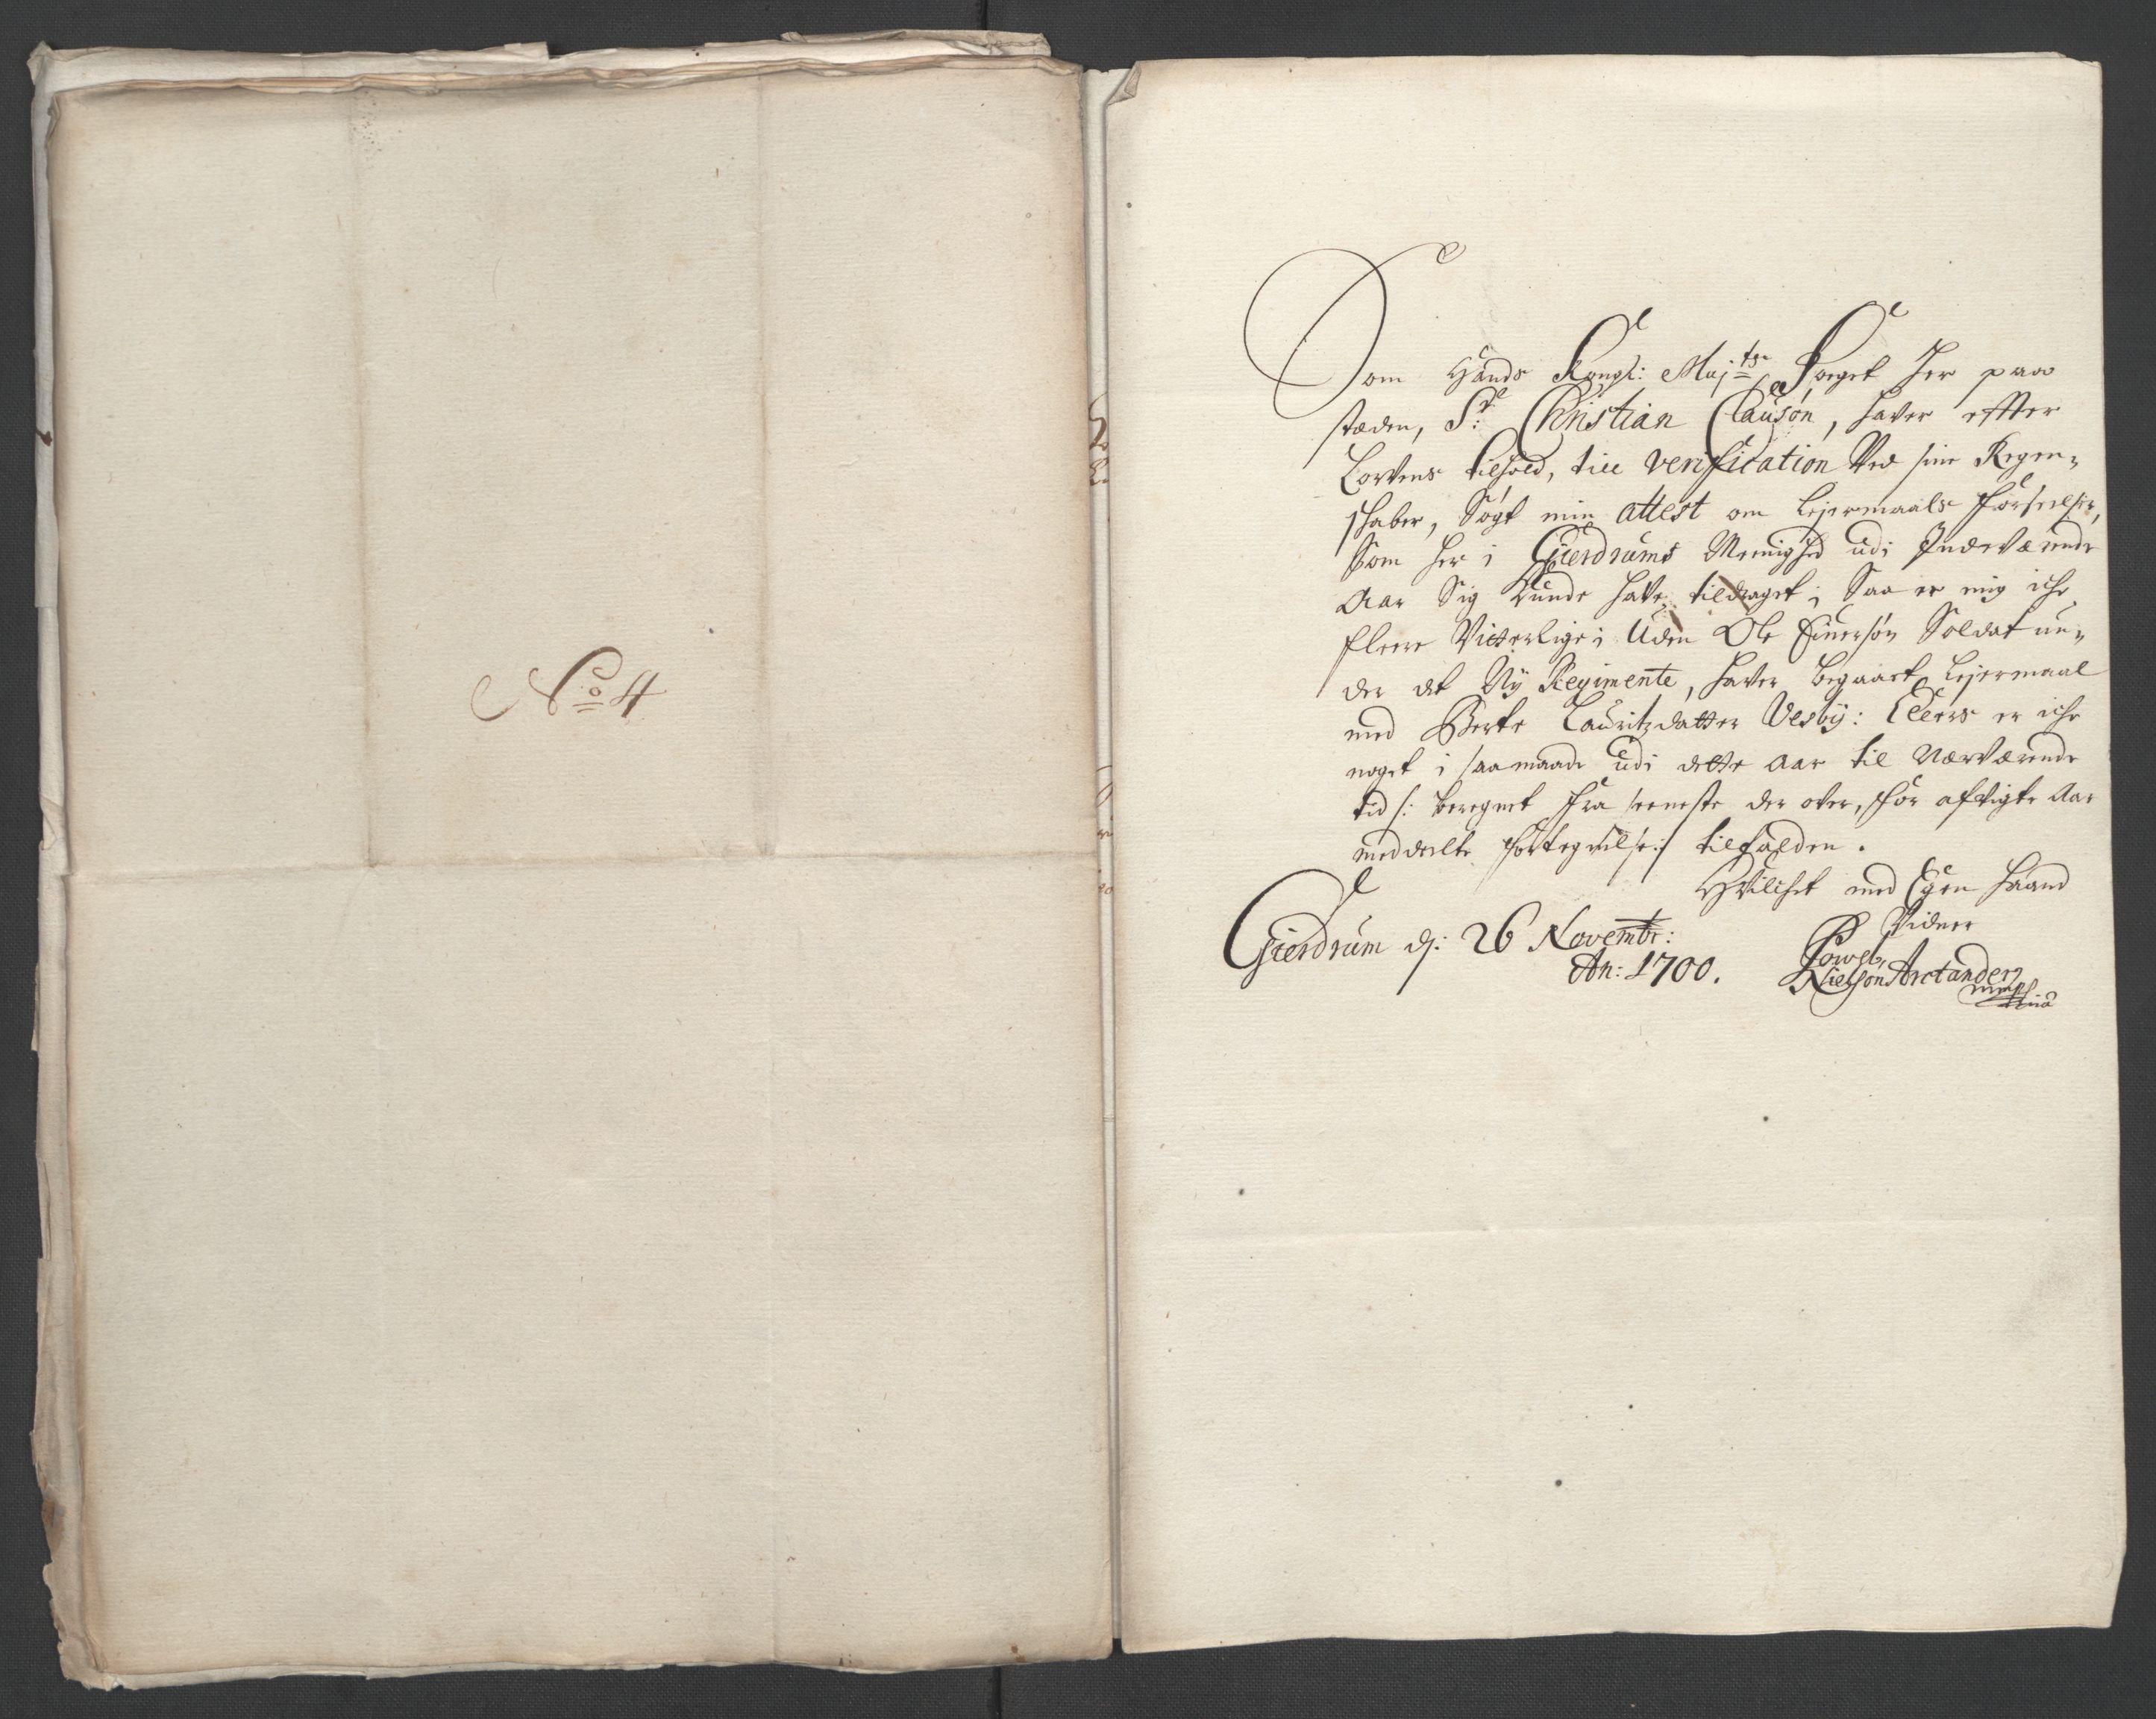 No 4
Som Hands Kongl: Maj:ts Foeget her paa
stæden, Sr: Christian Clausøn, haver effter
Lovens tilhold, till verification Ved sine Regen-
skaber, Søgt min attest om Lejermaals forseelser,
Som her i Gierdrums Meenighed udi Indeværende
Aar Sig kunde have tildraget; Saa er mig iche
fleere Vitterlige; Uden Ole Einersøn Soldat un-
der det Ny Regimente, haver begaaet Lejermaal
med Berte Lauritzdatter Vesby: Ellers er iche
noget i saamaade udi dette Aar til nærværende
tid /: beregnet fra seeneste der over, for afvigte Aar
meddeelte fortegnelse :/ tilfalden.
Hvilchet med Egen Haand
Vidner
Gierdrum d: 26 Novembr:
An: 1700.
Powel
Nielsøn Arctander
mpria